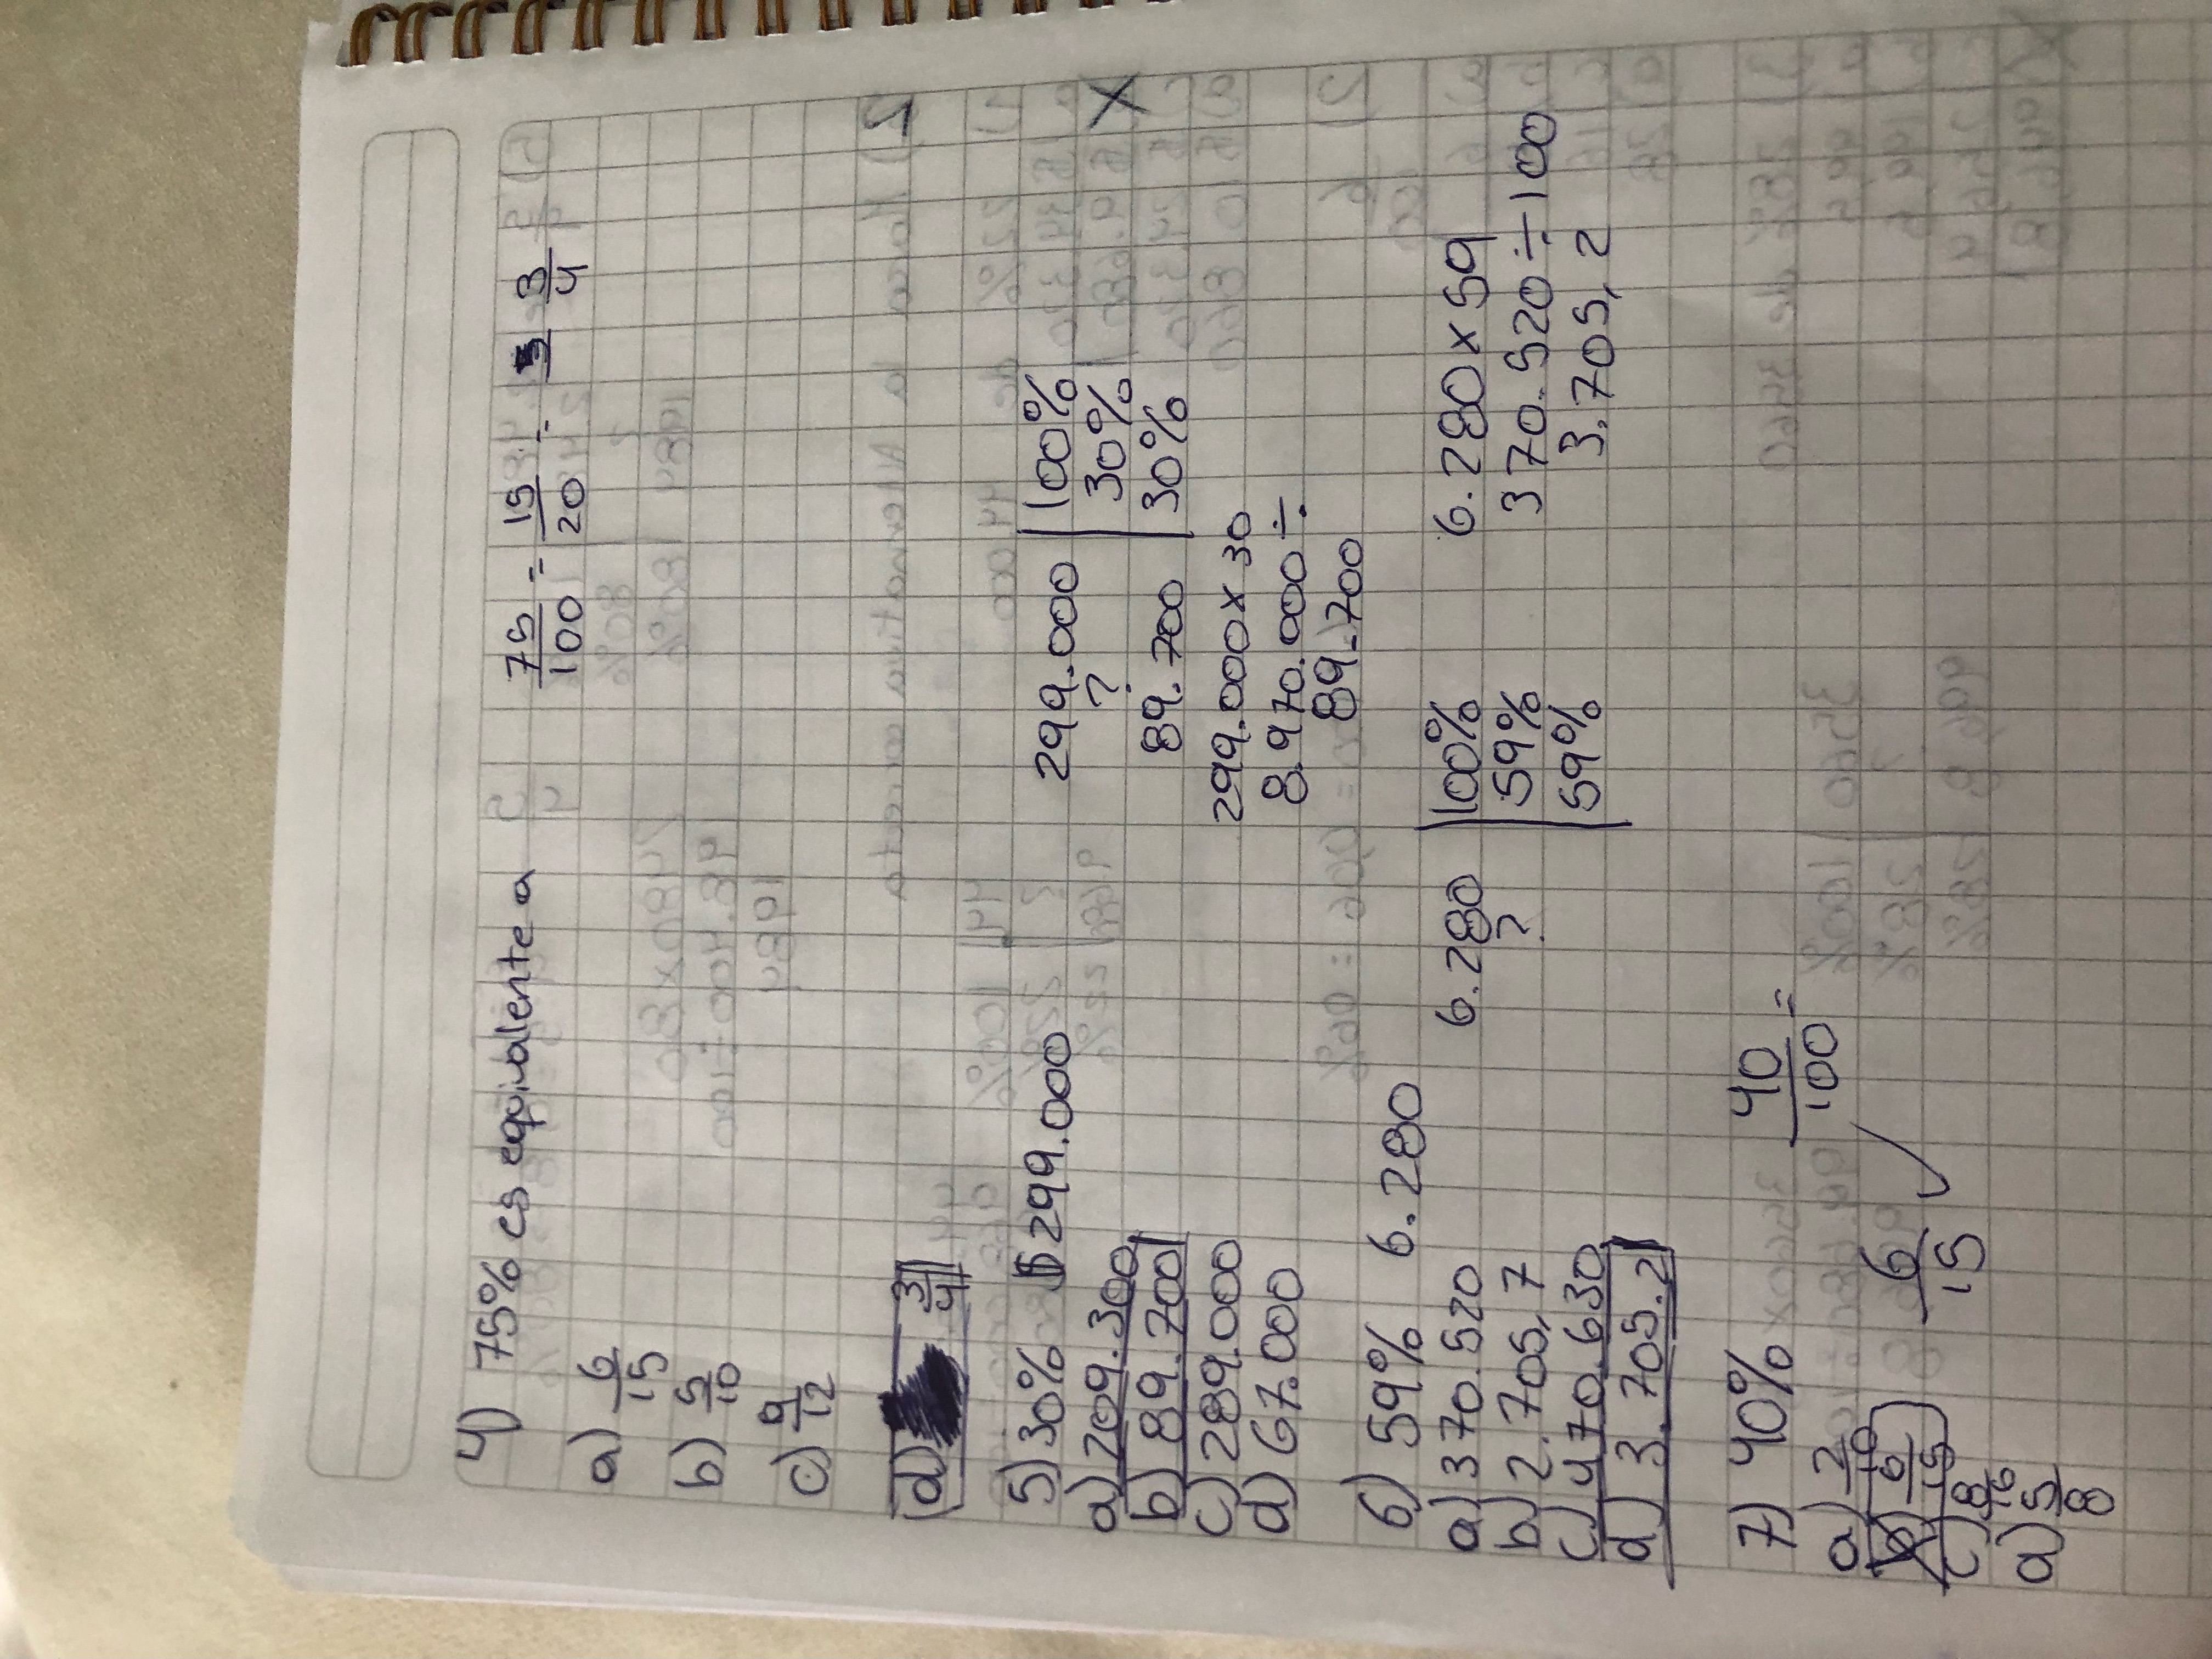 4) 75% es equivalente a
75/100 = 15/20 : 5 = 3/4
a) 6/15
b) 5/10
c) 9/12
d) 3/4
5) 30% $299.000
a) 209.300
b) 89.700
c) 289.000
d) 67.000
299.000 | 100%
? 30%
89.700 | 30%
299.000 x 30
8.970.000 ÷
89.700
X
6) 59% 6.280
a) 370.520
b) 2.705,7
c) 470.630
d) 3.705.2
6.280 | 100%
? 59%
59%
6.280 x 59
370.520 ÷ 100
3.705,2
7) 40%
40/100 =
6/15
a) 2/10
b) 6/15
c) 8/16
d) 5/8